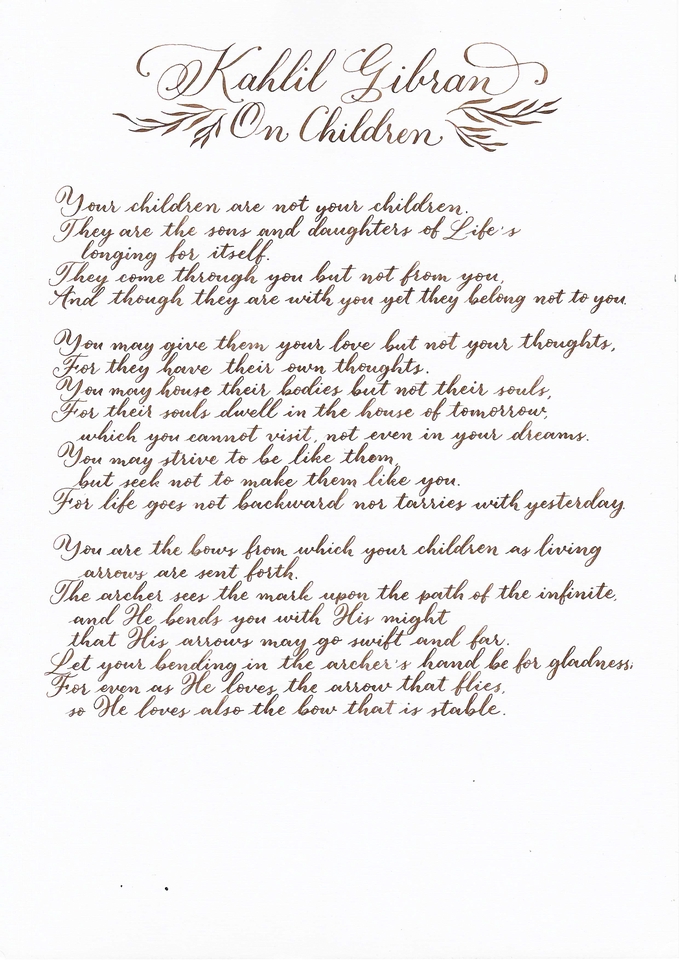 Kahlil Gibran
On Children
Your children are not your children.
They are the sons and daughters of Life's
longing for itself.
They come through you but not from you,
And though they are with you yet they belong not to you.
You may give them your love but not your thoughts,
For they have their own thoughts.
You may house their bodies but not their souls,
For their souls dwell in the house of tomorrow,
which you cannot visit, not even in your dreams.
You may strive to be like them,
but seek not to make them like you.
For life goes not backward nor tarries with yesterday.
You are the bows from which your children as living
arrows are sent forth.
The archer sees the mark upon the path of the infinite,
and He bends you with His might
that His arrows may go swift and far.
Let your bending in the archer's hand be for gladness;
For even as He loves the arrow that flies,
so He loves also the bow that is stable.